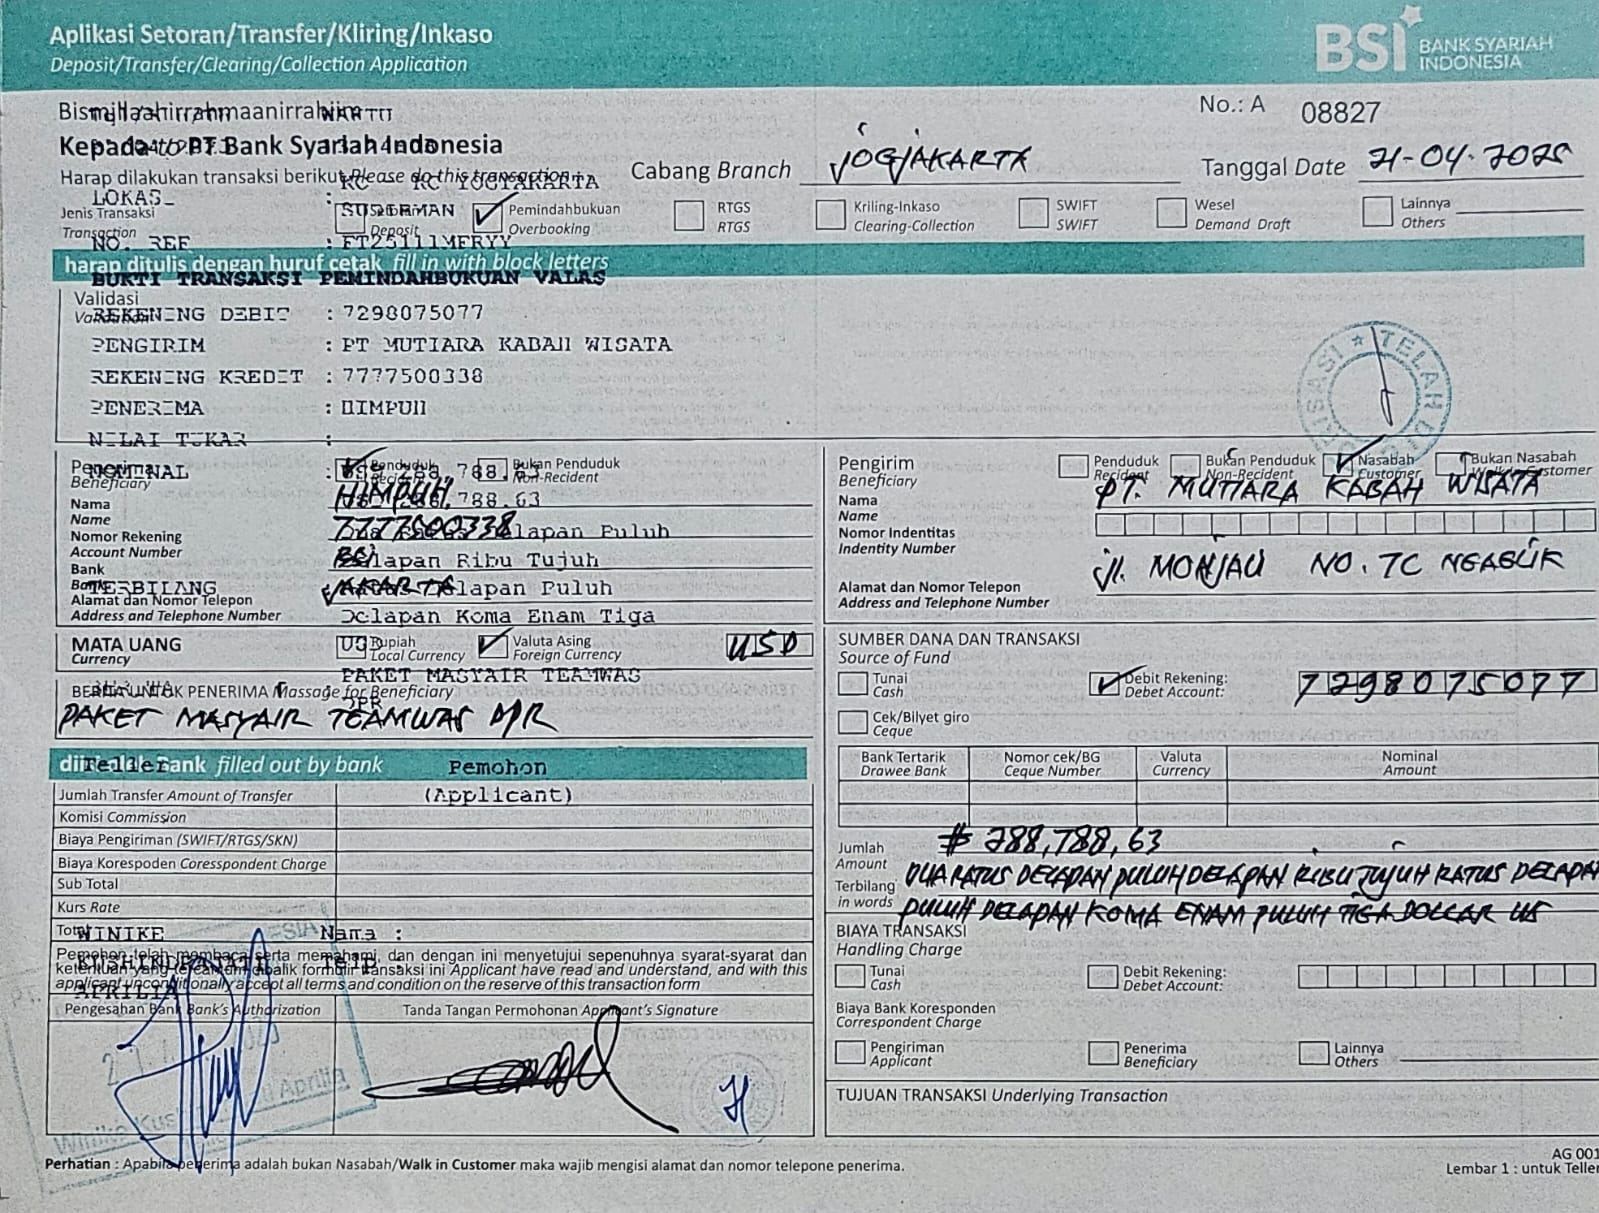 Aplikasi Setoran/Transfer/Kliring/Inkaso
Deposit/Transfer/Clearing/Collection Application
BSI BANK SYARIAH INDONESIA
Bismillaahirrahmaanirrahiim
WAKTU
No.: A 08827
Kepada to PT Bank Syariah Indonesia
Harap dilakukan transaksi berikut Please do this transaction:
KC KC YOGYAKARTA
Cabang Branch JOGJAKARTA
Tanggal Date 21-04-2025
LOKAS_ :
SUDIRMAN
Jenis Transaksi
Transaction
Deposit
Pemindahbukuan
Overbooking
RTGS
RTGS
Kriling-Inkaso
Clearing-Collection
SWIFT
SWIFT
Wesel
Demand Draft
Lainnya
Others
NO. REF : FT25111MFRYY
harap ditulis dengan huruf cetak fill in with block letters
BUKTI TRANSAKSI PEMINDAHBUKUAN VALAS
Validasi
REKENING DEBIT : 7298075077
PENGIRIM : PT MUTIARA KABAH WISATA
REKENING KREDIT : 7777500338
PENERIMA : HIMPUH
NILAI TUKAR :
NOMINAL :
Beneficiary
Penduduk
Recident
Bukan Penduduk
Non-Recident
Nama
Name
HIMPUH
788.63
Nomor Rekening
Account Number
7777500338
lapan Puluh
Bank
BSI
lapan Ribu Tujuh
TERBILANG
JAKARTA
lapan Puluh
Alamat dan Nomor Telepon
Address and Telephone Number
Delapan Koma Enam Tiga
MATA UANG
Currency
Rupiah
Local Currency
Valuta Asing
Foreign Currency
USD
PAKET MASYAIR TEAMWAS
DPR
BERITA UNTUK PENERIMA Massage for Beneficiary
PAKET MASYAIR TEAMWAS DPR
Teller
Bank filled out by bank
Pemohon
(Applicant)
Jumlah Transfer Amount of Transfer
Komisi Commission
Biaya Pengiriman (SWIFT/RTGS/SKN)
Biaya Korespoden Coresspondent Charge
Sub Total
Kurs Rate
Total
WINIKE
Nama :
Pemohon telah membaca serta memahami, dan dengan ini menyetujui sepenuhnya syarat-syarat dan
ketentuan yang tercantum dibalik formulir transaksi ini Applicant have read and understand, and with this
applicant unconditionally accept all terms and condition on the reserve of this transaction form
KUSHINDRAJATI
Telp :
APRILIA
Pengesahan Bank Bank's Authorization
Tanda Tangan Permohonan Applicant's Signature
Pengirim
Beneficiary
Penduduk
Recident
Bukan Penduduk
Non-Recident
Nasabah
Customer
Bukan Nasabah
Walk in Customer
Nama
Name
PT. MUTIARA KABAH WISATA
Nomor Indentitas
Indentity Number
Alamat dan Nomor Telepon
Address and Telephone Number
Jl. MONJALI NO. 7C NGAGLIK
SUMBER DANA DAN TRANSAKSI
Source of Fund
Tunai
Cash
Debit Rekening:
Debet Account:
7298075077
Cek/Bilyet giro
Ceque
Bank Tertarik
Drawee Bank
Nomor cek/BG
Ceque Number
Valuta
Currency
Nominal
Amount
Jumlah
Amount
$ 288,788,63
Terbilang
in words
DUA RATUS DELAPAN PULUH DELAPAN RIBU TUJUH RATUS DELAPAN
PULUH DELAPAN KOMA ENAM PULUH TIGA DOLLAR US
BIAYA TRANSAKSI
Handling Charge
Tunai
Cash
Debit Rekening:
Debet Account:
Biaya Bank Koresponden
Correspondent Charge
Pengiriman
Applicant
Penerima
Beneficiary
Lainnya
Others
TUJUAN TRANSAKSI Underlying Transaction
Perhatian : Apabila penerima adalah bukan Nasabah/Walk in Customer maka wajib mengisi alamat dan nomor telepone penerima.
AG 001
Lembar 1 : untuk Teller